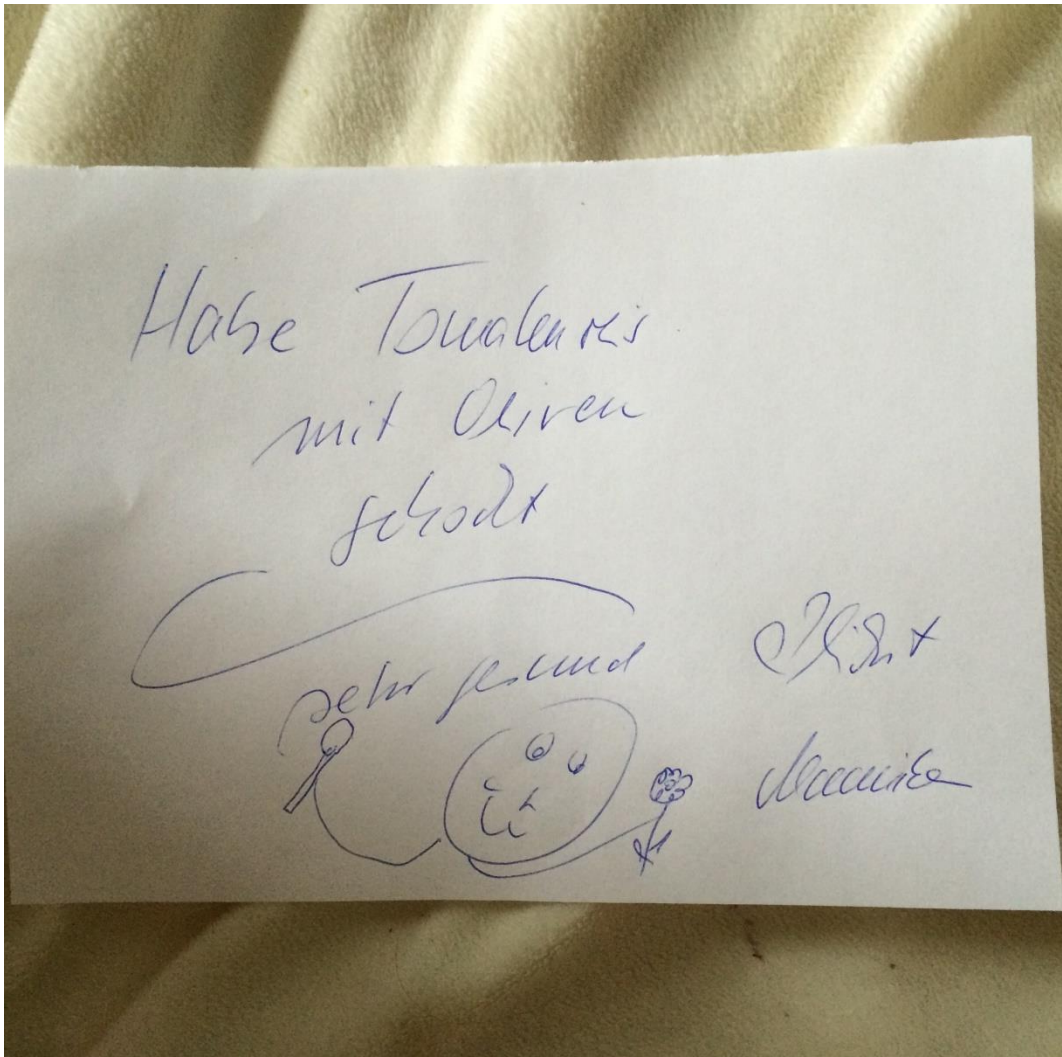 Habe Tomatenreis
mit Oliven
gekocht
sehr gesund